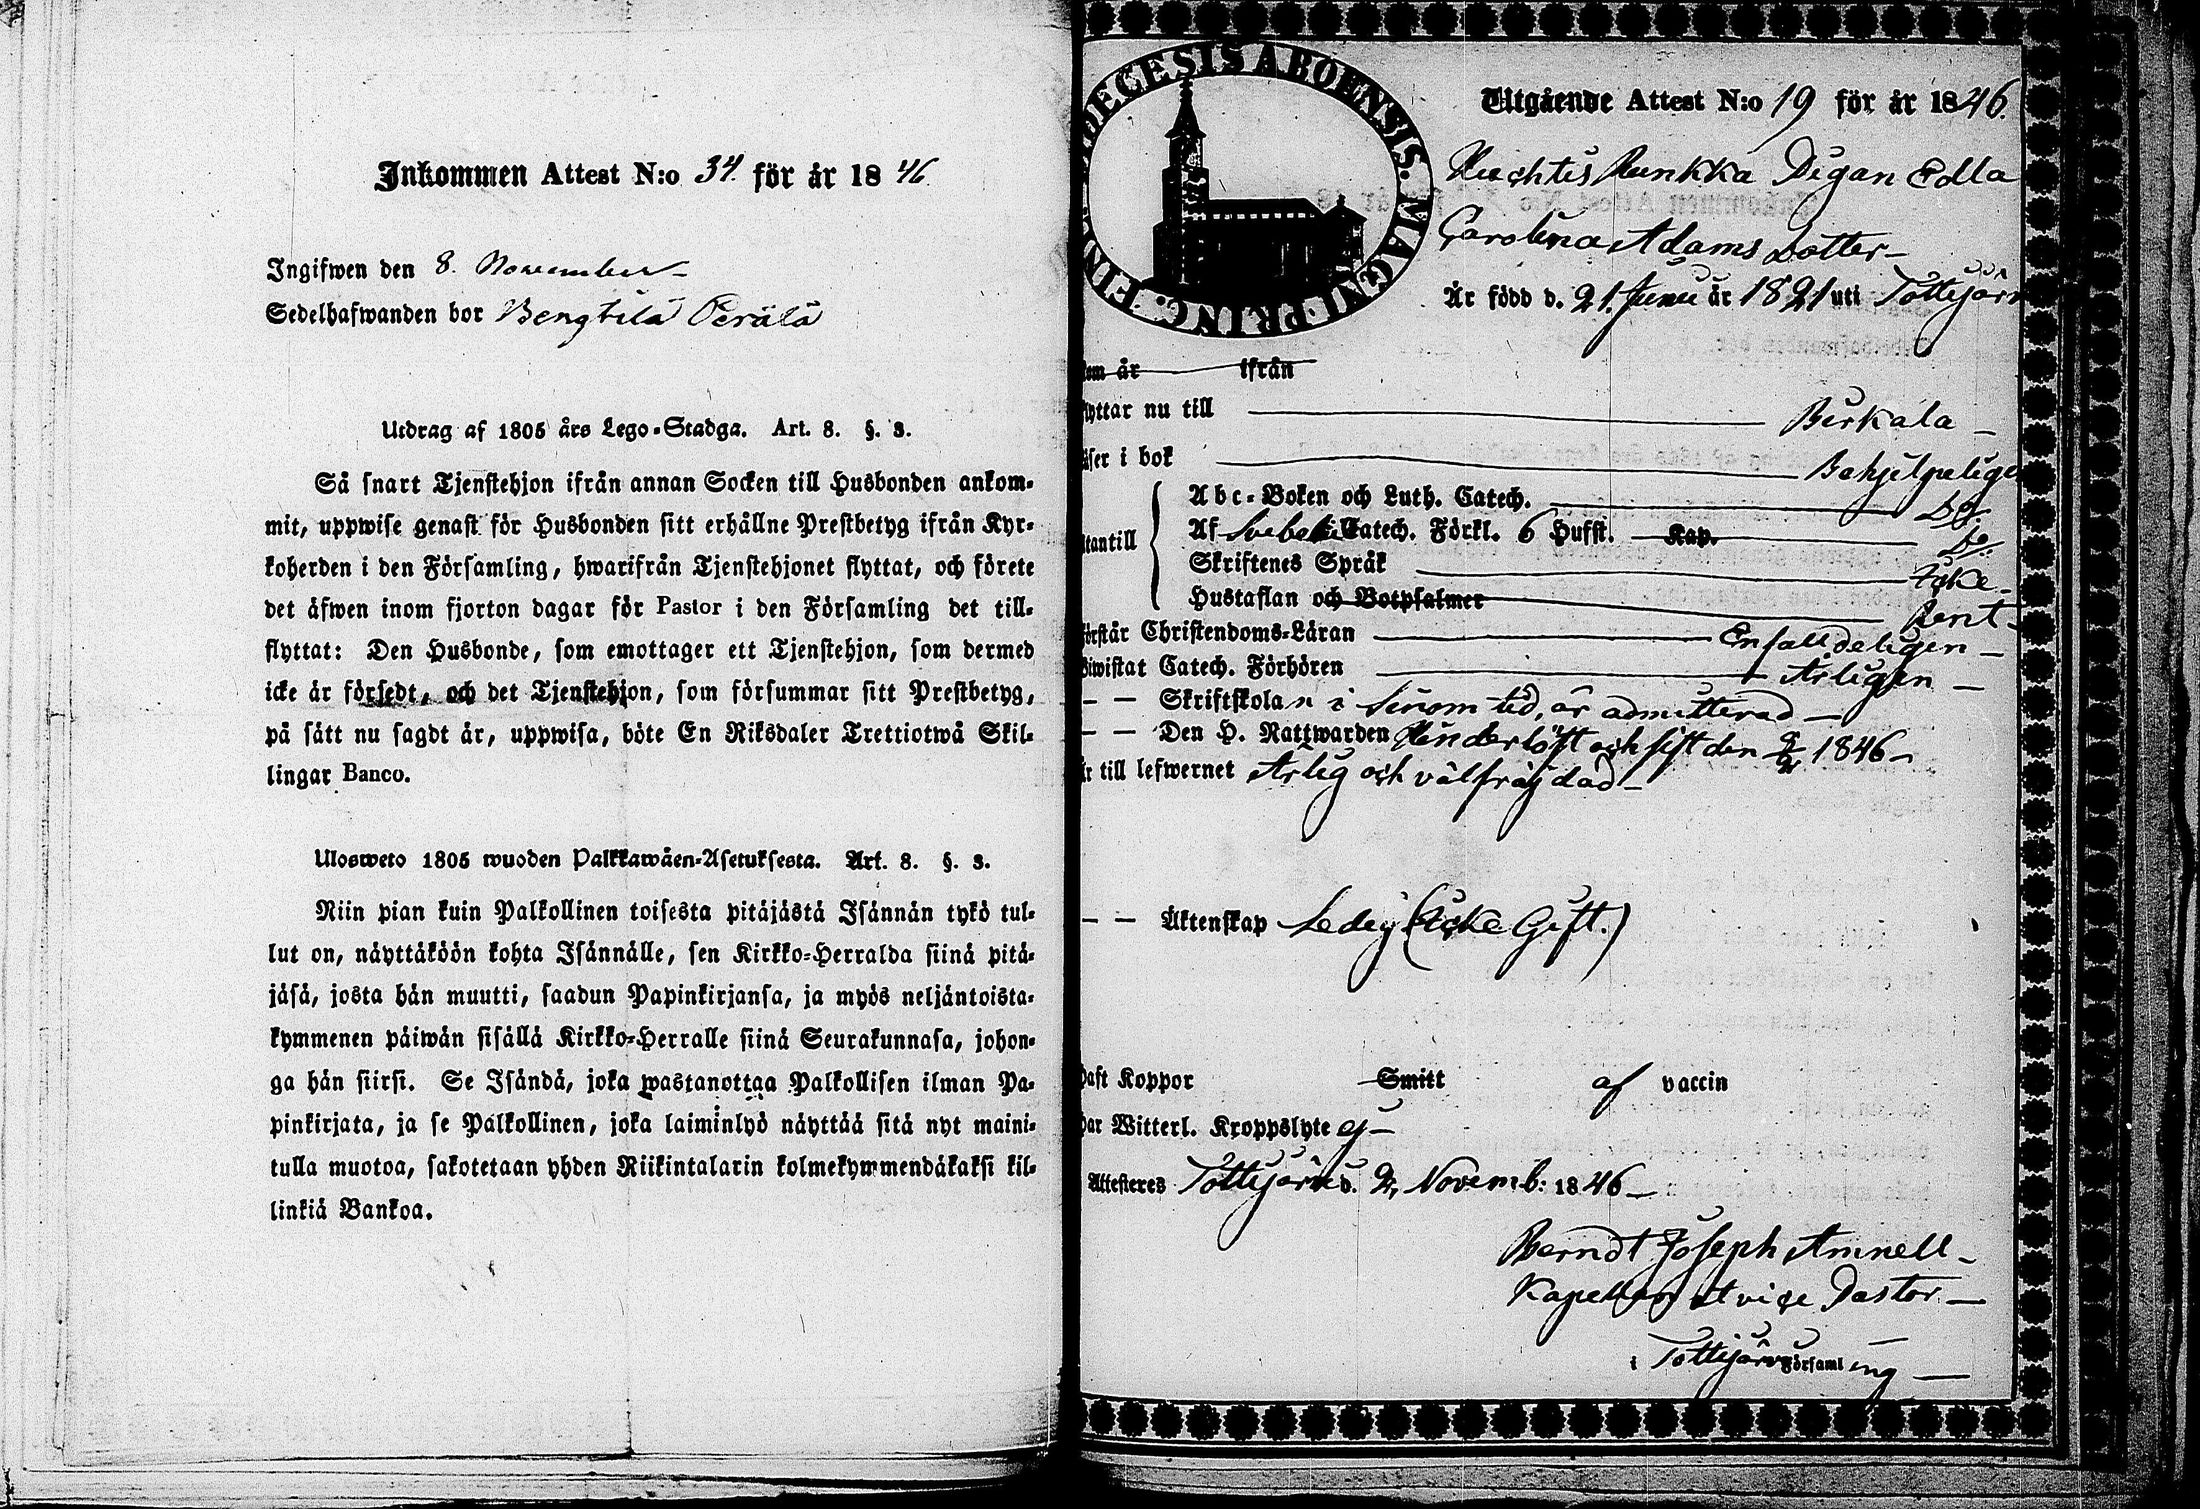 Inkommen Attest N:o 34. för år 1846
Ingifwen den 8. November
Sedelhafwanden bor Bengtilä Perälä
Utdrag af 1805 års Lego-Stadga. Art. 8. §. 3.
Så snart Tjenstehjon ifrån annan Socken till Husbonden ankom-
mit, uppwise genast för Husbonden sitt erhållne Prestbetyg ifrån Kyr-
koherden i den Församling, hwarifrån Tjenstehjonet flyttat, och förete
det äfwen inom fjorton dagar för Pastor i den Församling det till-
flyttat: Den Husbonde, som emottager ett Tjenstehjon, som dermed
icke är försedt, och det Tjenstehjon, som försummar sitt Prestbetyg,
på sätt nu sagdt är, uppwisa, böte En Riksdaler Trettiotwå Skil-
lingar Banco.
Ulosweto 1805 wuoden Palkkawäen-Asetuksesta. Art. 8. §. 3.
Niin pian kuin Palkollinen toisesta pitäjästä Isännän tykö tul-
lut on, näyttäköön kohta Isännälle, sen Kirkko-Herralda siinä pitä-
jäsä, josta hän muutti, saadun Papinkirjansa, ja myös neljäntoista-
kymmenen päiwän sisällä Kirkko-Herralle siinä Seurakunnasa, johon-
ga hän siirsi. Se Isändä, joka wastanottaa Palkollisen ilman Pa-
pinkirjata, ja se Palkollinen, joka laiminlyö näyttää sitä nyt maini-
tulla muotoa, sakotetaan yhden Riikintalarin kolmekymmendäkaksi kil-
linkiä Bankoa.
DIECESIS ABOENSIS. MAGNI PRINC. FINL.
Utgående Attest N:o 19 för år 1846.
Huchtis Runkka Pigan Edla
Carolina Adams dotter
Är född d. 21. Junii år 1821 uti Tottijärvi
om år ifrån
yttar nu till Birkala
äser i bok Behjelpeligen
tantill
Abc-Boken och Luth. Catech. Do.
Af Svebelii Catech. Förkl. 6 Hufst. Kap. Do.
Skriftenes Språk Icke
Hustaflan och Botpsalmer Rent
örstår Christendoms-Läran Enfalldeligen
iwistat Catech. Förhören Årligen
— — Skriftskolan i sinom tid, är admitterad
— — Den H. Nattwarden Hinderlöst och sist den 1846
r till lefwernet Ärlig och välfräjdad
— — Äktenskap Ledig (Icke Gift.)
aft Koppor Smitt af vaccin
ar Witterl. Kroppslyte ej
Attesteres Tottijärvi d. 2, Novemb: 1846
Berndt Joseph Amnell
Kapellan et vice Pastor
i Tottijärvi Församling